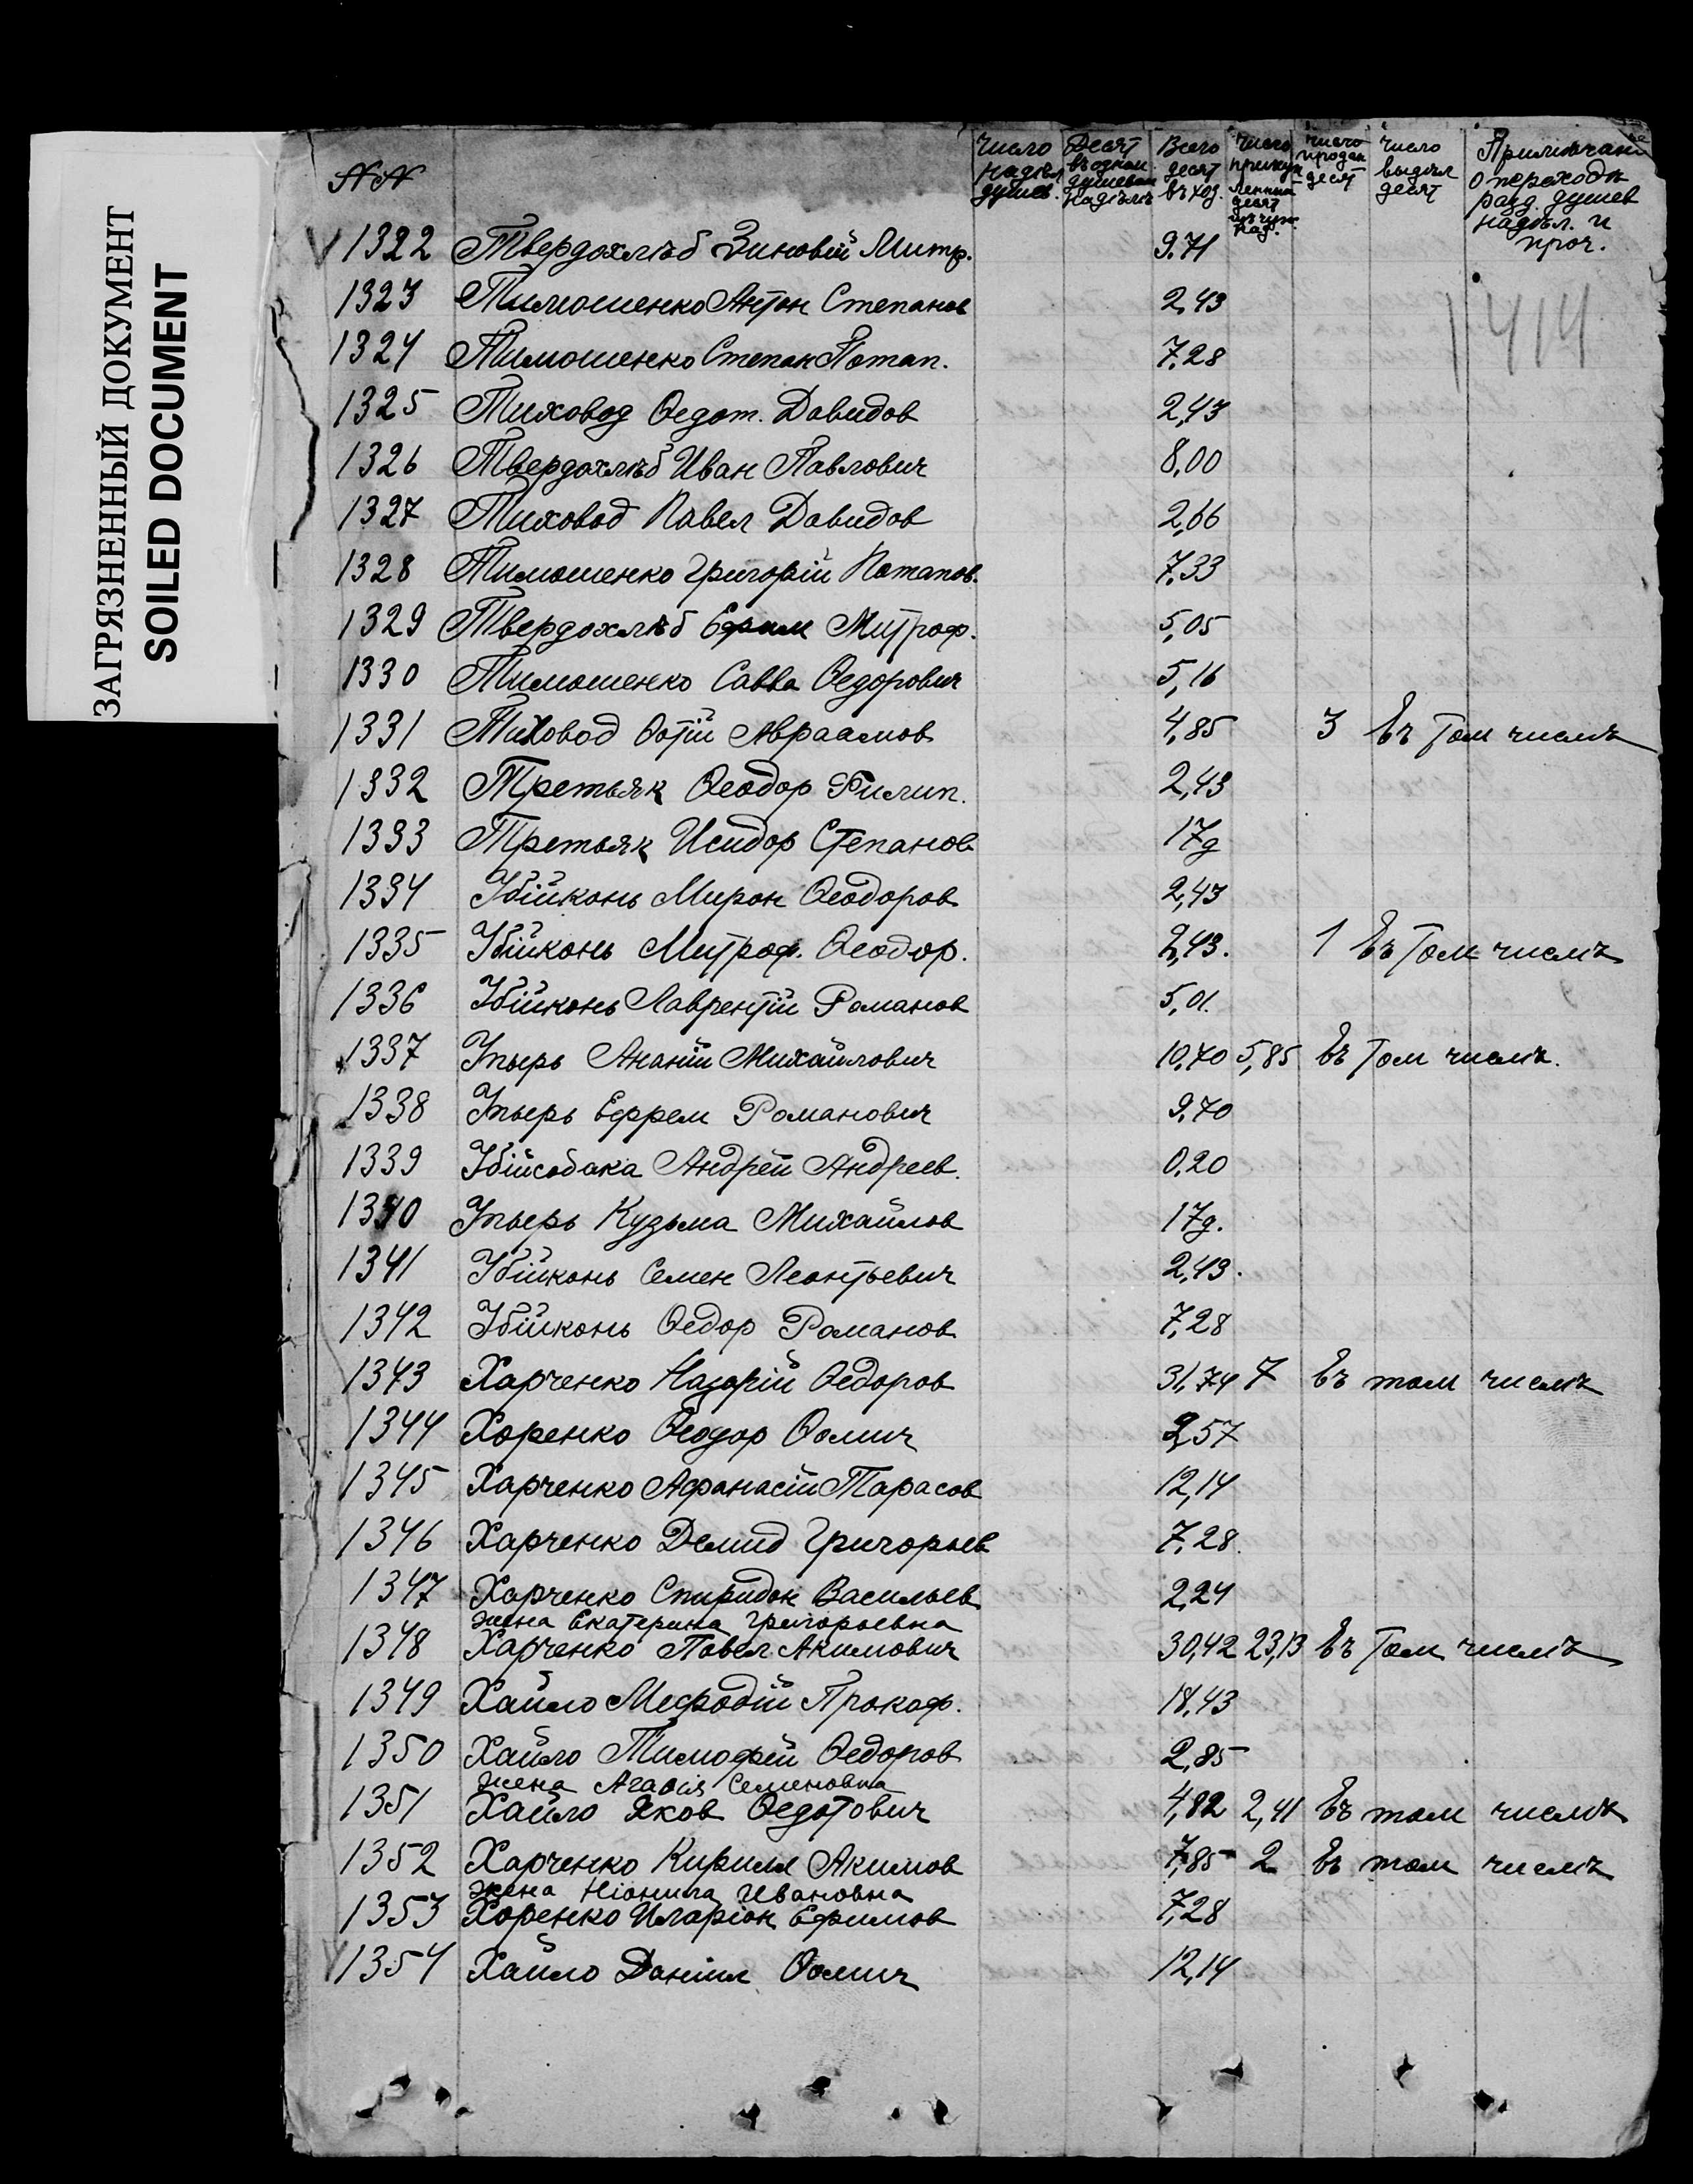 ЗАГРЯЗНЕННЫЙ ДОКУМЕНТ
SOILED DOCUMENT
NN
Число надѣл душев.
Десят въ одном душевом надѣлѣ
Всего десят въ ход.
Число десят
число продан десят
Число выдѣл десят
Примѣчан о переходѣ разд. душев надѣл. и проч.
1322 Твердохлѣб Зиновій Митр. 9.71
414
1323 Тимошенко Антон Степанов 2,43
1324 Тимошенко Степан Потап. 7,28
1325 Тиховод Ѳедот. Давидов 2,43
1326 Твердохлѣб Иван Павлович 8,00
1327 Тиховод Павел Давидов 2,66
1328 Тимошенко Григорій Потапов. 7,33
1329 Твердохлѣб Ефим Митроф. 5,05
1330 Тимошенко Савва Ѳедорович 5,16
1331 Тиховод Ѳотій Авраамов 4,85 3 въ том числѣ
1332 Третьяк Ѳеодор Филип. 2,43
1333 Третьяк Исидор Степанов 17д
1334 Убійконь Мирон Ѳеодоров 2,43
1335 Убійконь Митроф. Ѳеодор. 2,43. 1 въ том числѣ
1336 Убійконь Лаврентій Романов 5,01.
1337 Упырь Ананій Михайлович 10,70 5,85 въ том числѣ.
1338 Упырь Ефрем Романович 9.70
1339 Убійсобака Андрей Андреев. 0,20
1340 Упырь Кузьма Михайлов 17д.
1341 Убійконь Семен Леонтьевич 2,43.
1342 Убійконь Ѳедор Романов 7,28
1343 Харченко Назарій Ѳедоров 31,74 7 въ том числѣ
1344 Хоренко Ѳеодор Ѳомич 2,57
1345 Харченко Афанасій Тарасов 12,14
1346 Харченко Демид Григорьев 7,28.
1347 Харченко Спиридон Васильев 2,24
жена Екатерина Григорьевна
1348 Харченко Павел Акимович 30,42 23,13 въ том числѣ
1349 Хайло Мефодій Прокоф. 18,43
1350 Хайло Тимофей Ѳедоров 2,85
жена Агафія Семеновна
1351 Хайло Яков Ѳедотович 4,82 2,41 въ том числѣ
1352 Харченко Кирилл Акимов 7,85 2 въ том числѣ
жена Неонила Ивановна
1353 Хоренко Иларіон Ефимов 7,28
1354 Хайло Даніил Ѳомич 12,14